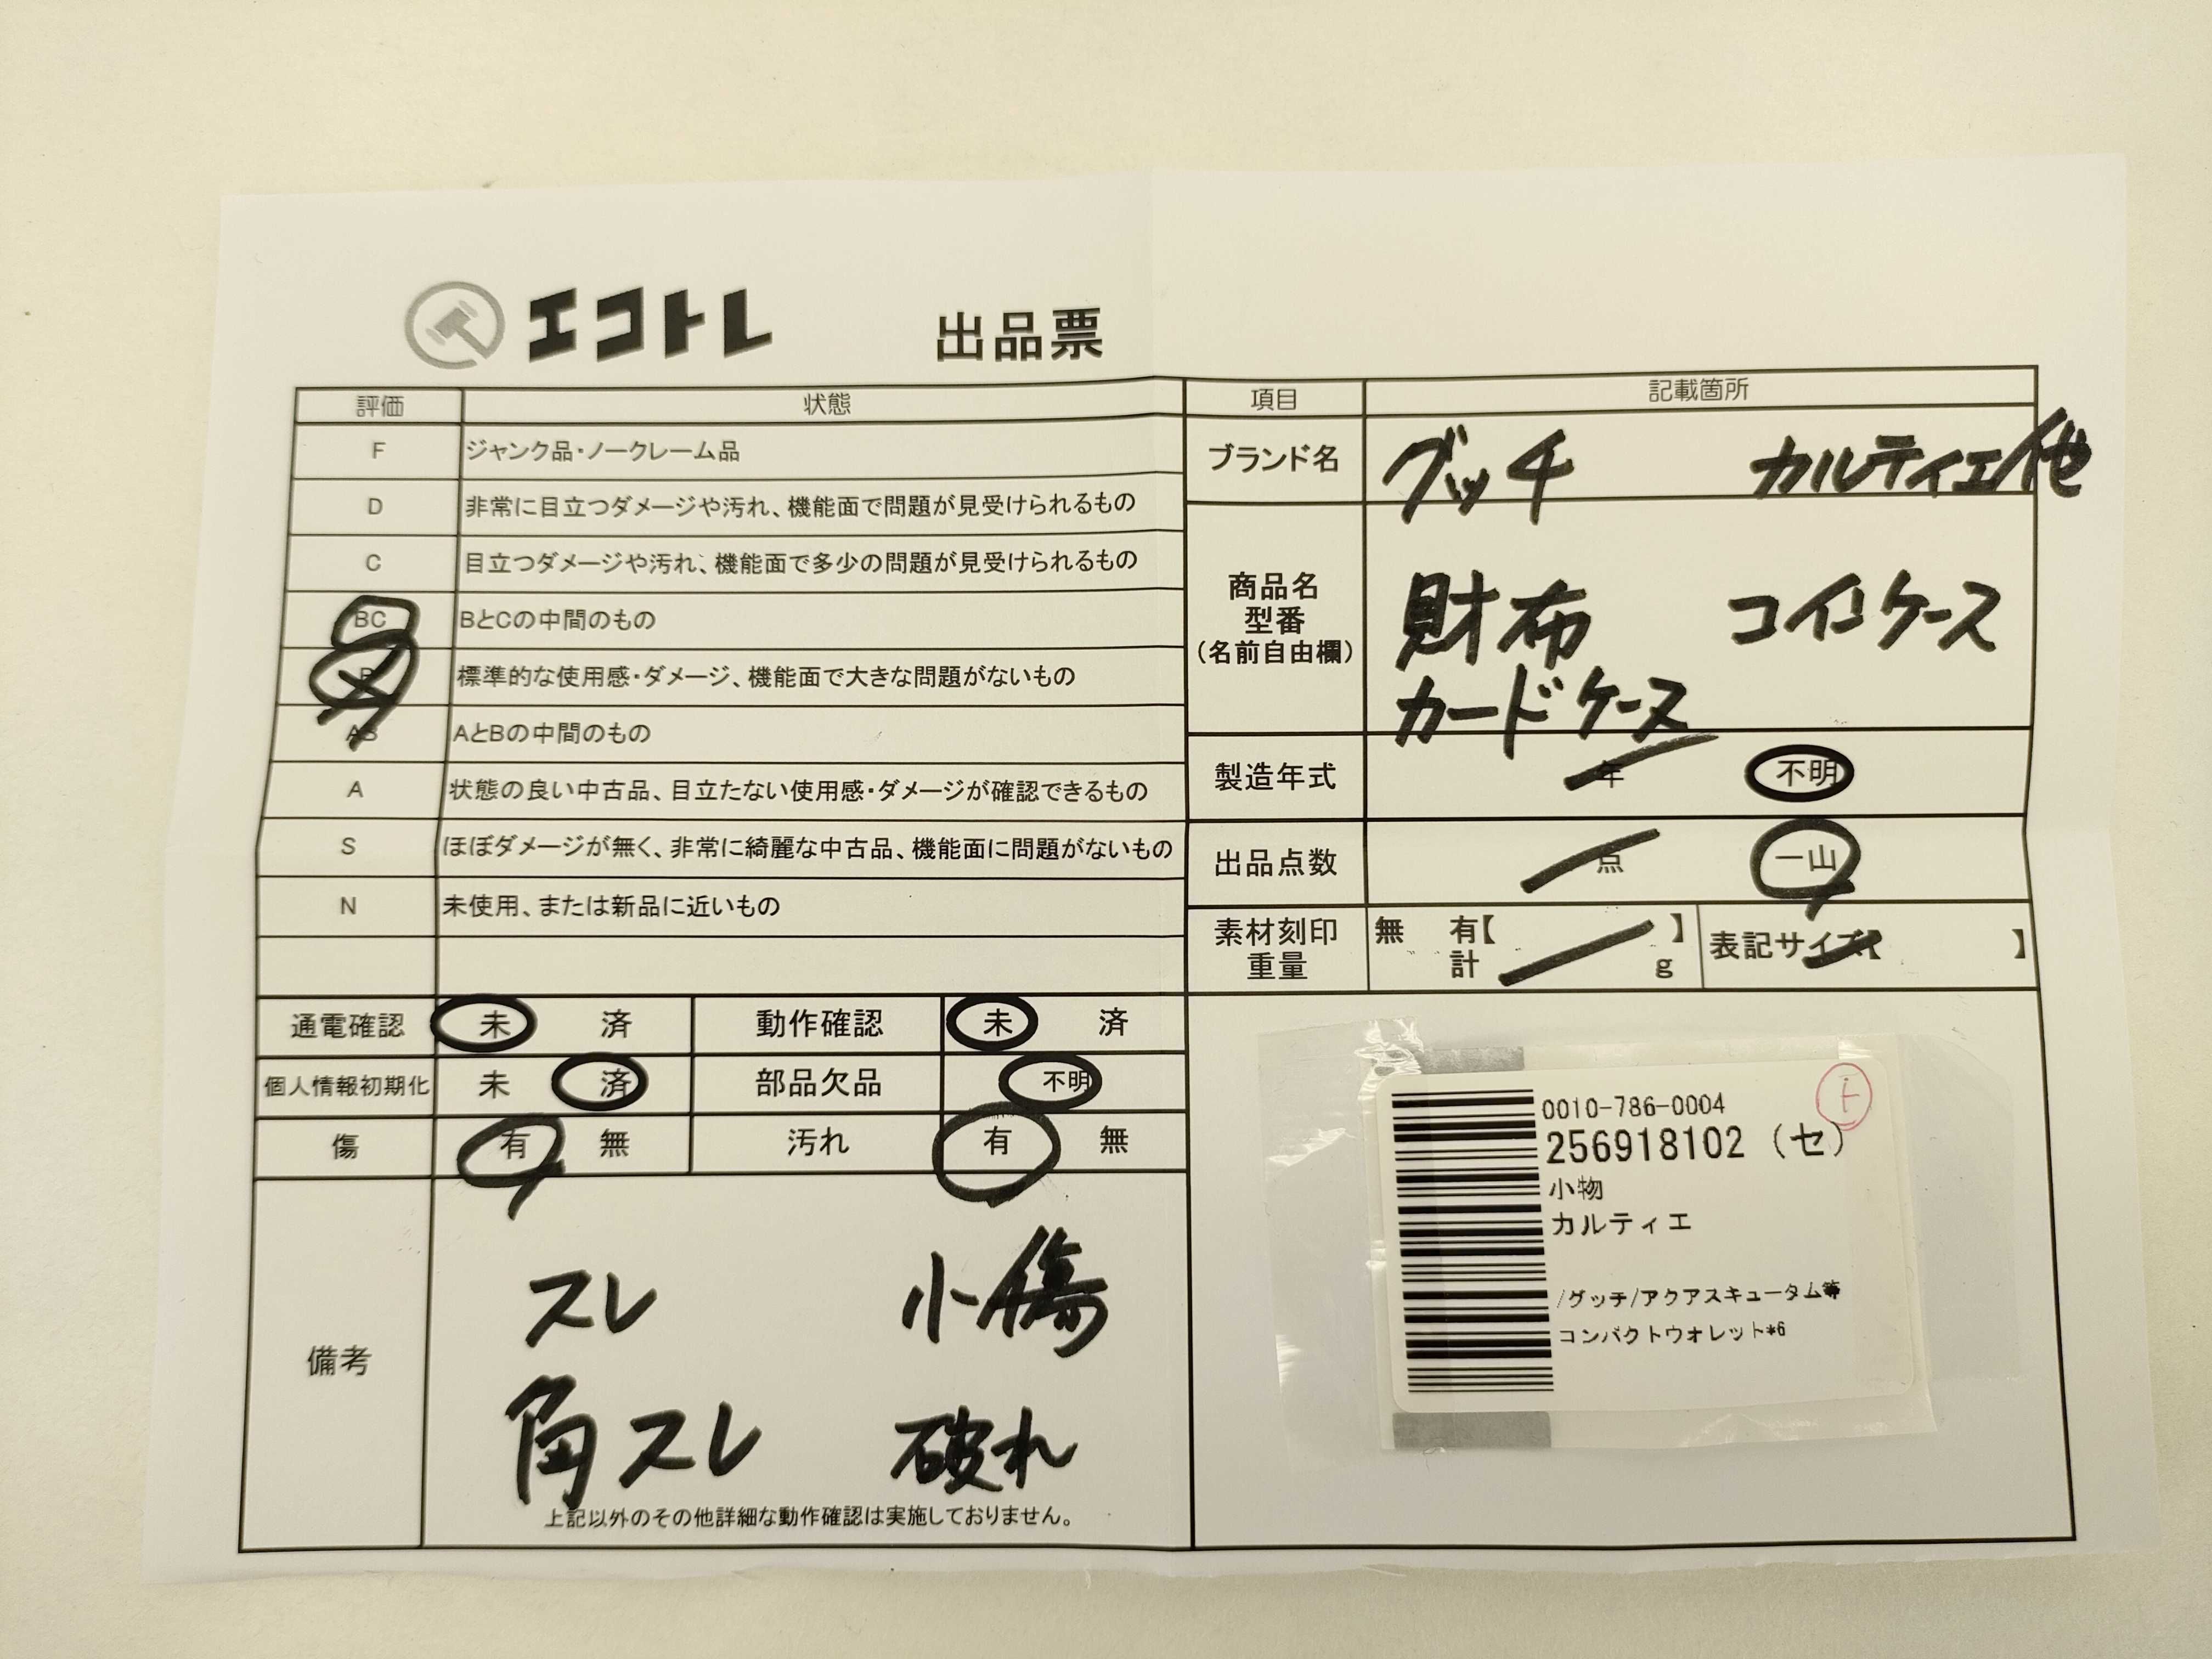 エコトレ 出品票
評価 状態 項目 記載箇所
F ジャンク品・ノークレーム品
D 非常に目立つダメージや汚れ、機能面で問題が見受けられるもの
C 目立つダメージや汚れ、機能面で多少の問題が見受けられるもの
BC BとCの中間のもの
B 標準的な使用感・ダメージ、機能面で大きな問題がないもの
AB AとBの中間のもの
A 状態の良い中古品、目立たない使用感・ダメージが確認できるもの
S ほぼダメージが無く、非常に綺麗な中古品、機能面に問題がないもの
N 未使用、または新品に近いもの
通電確認 未 済 動作確認 未 済
個人情報初期化 未 済 部品欠品 不明
傷 有 無 汚れ 有 無
備考
スレ 小傷
角スレ 破れ
上記以外のその他詳細な動作確認は実施しておりません。
ブランド名 グッチ カルティエ他
商品名
型番
(名前自由欄)
財布 コインケース
カードケース
製造年式 年 不明
出品点数 点 一山
素材刻印
重量
無 有【 】
計 g
表記サイズ【 】
0010-786-0004
256918102 (セ)
小物
カルティエ
/グッチ/アクアスキュータム等
コンパクトウォレット*6